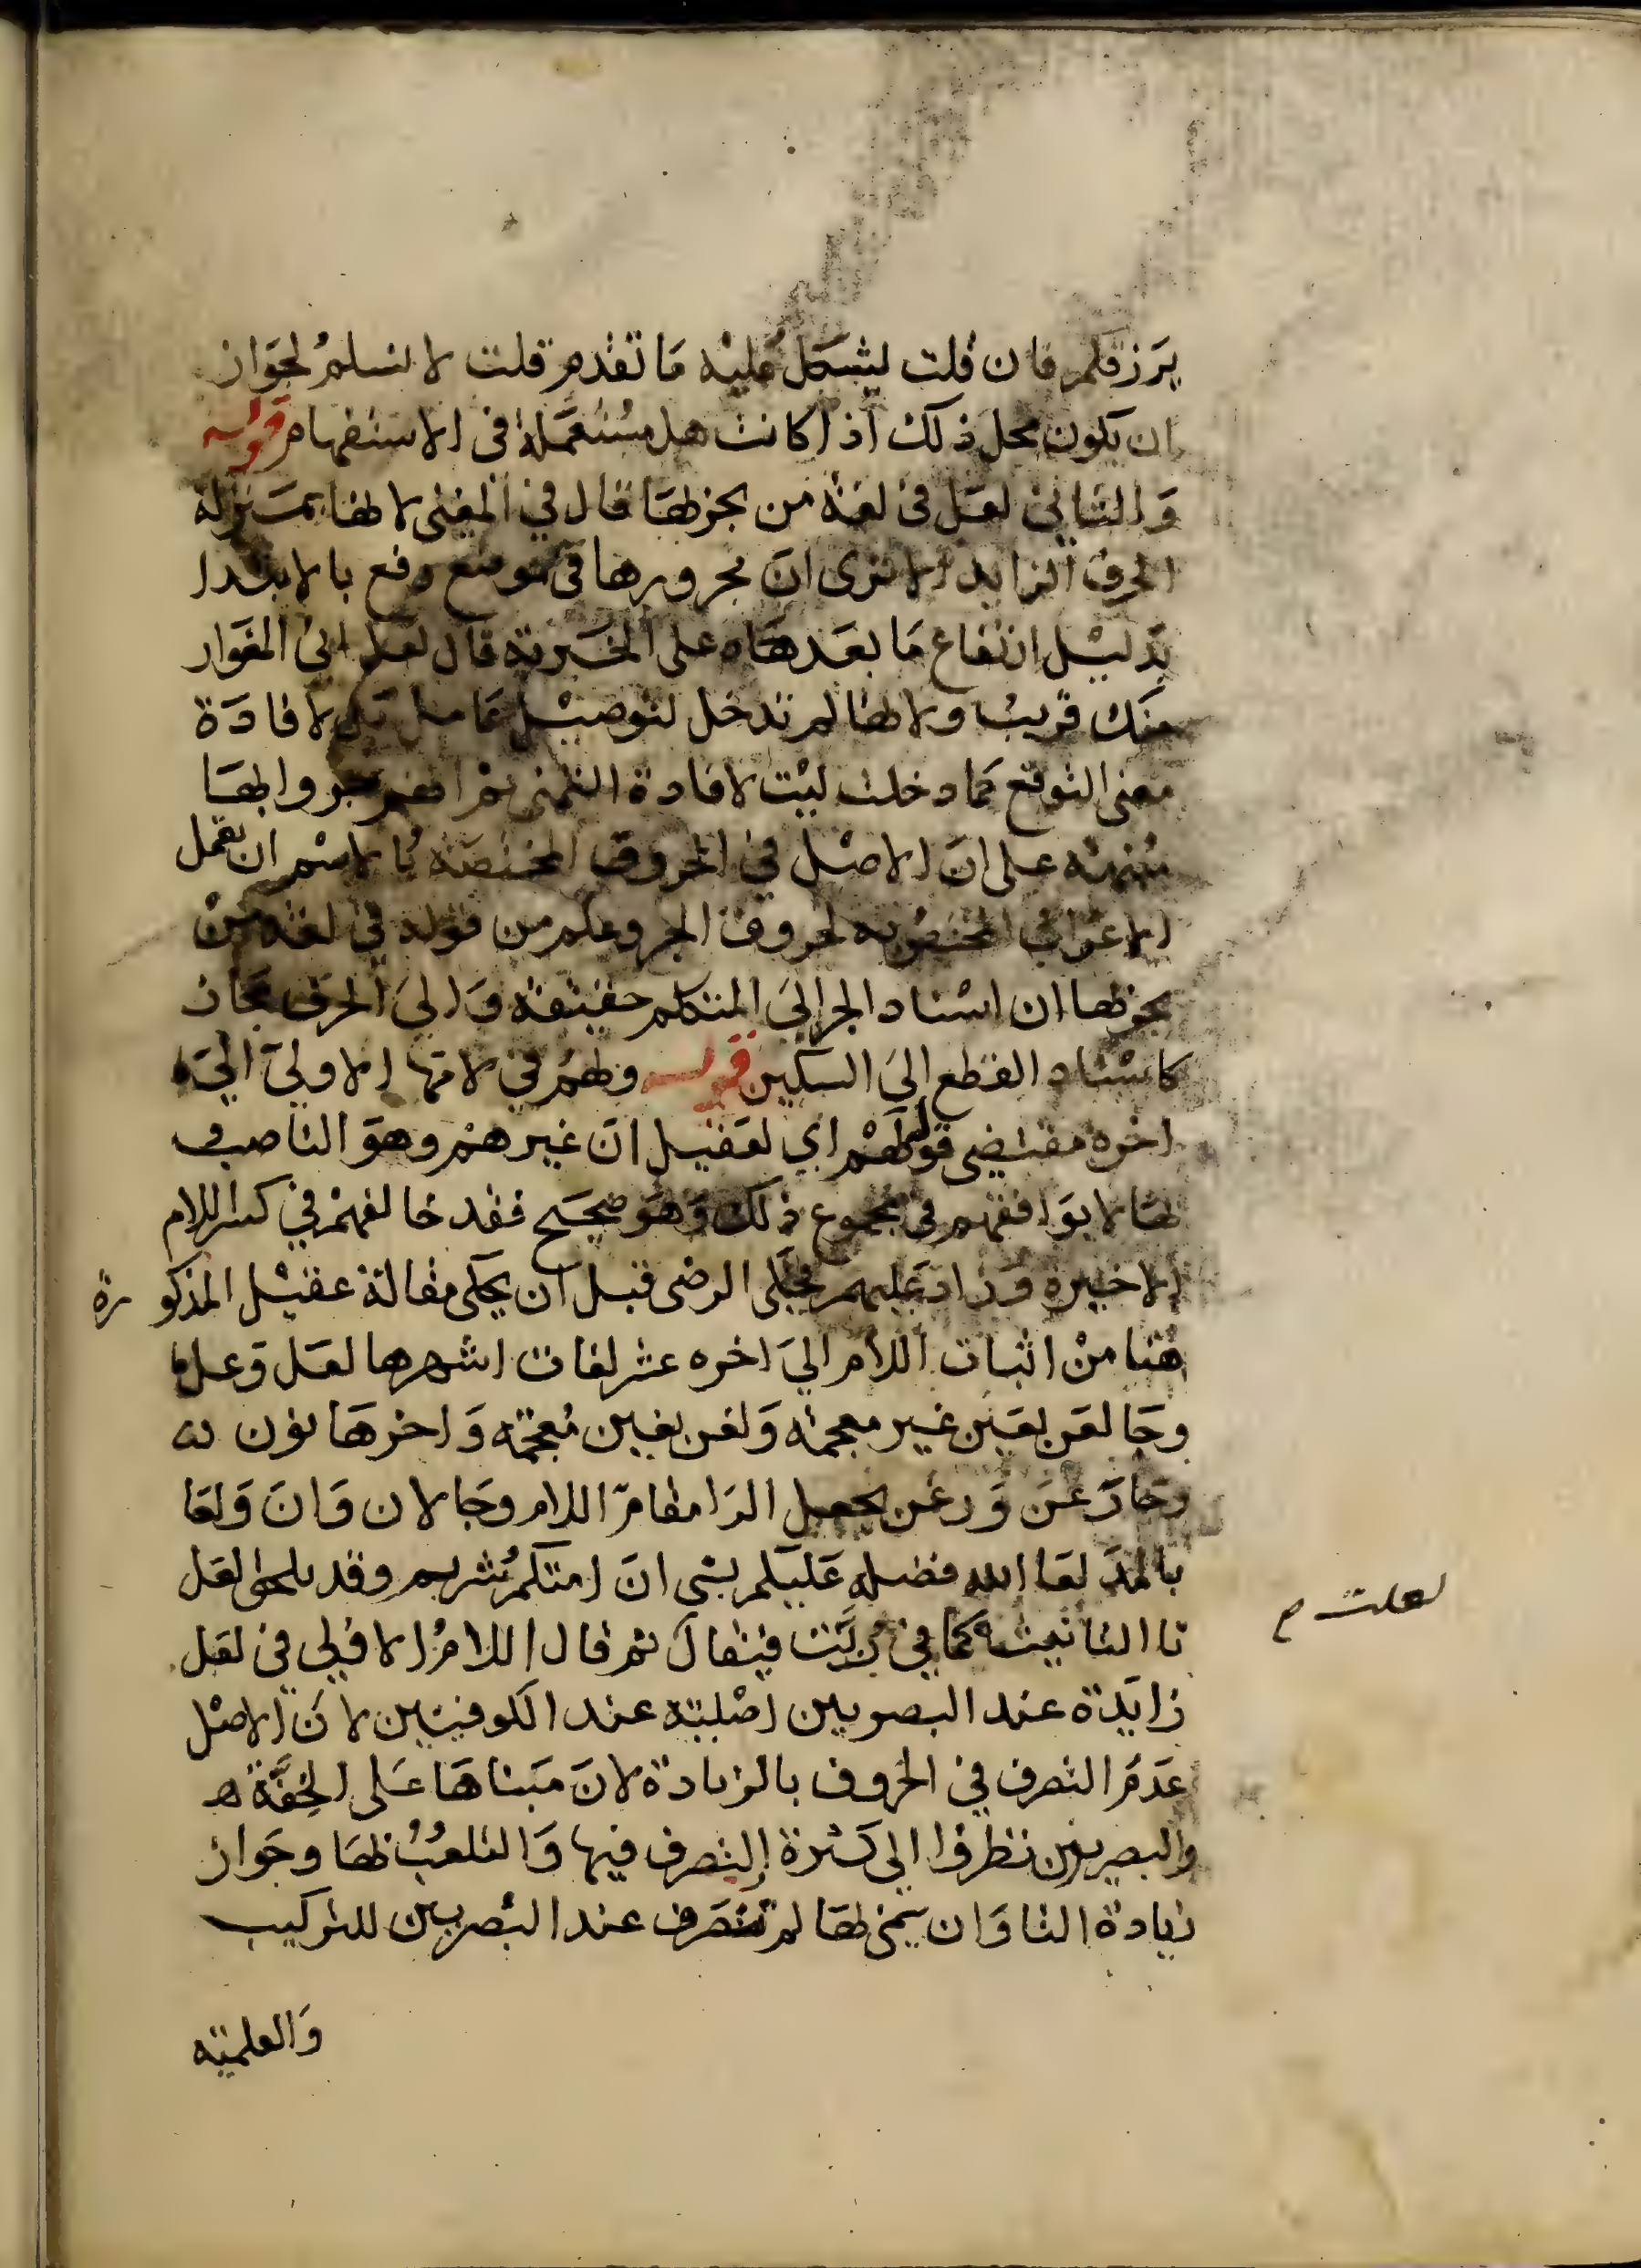 يرزقكم فان قلت يشكل عليه ما تقدم قلت لا نسلم لجواز
ان يكون محل ذلك اذا كانت هل مستعملة في الاستفهام قوله
وَالثاني لعل في لغة من يجر بها قال في المغني لانها بمنزلة
الحرف الزايد الا ترى ان مجرورها في موضع رفع بالابتدا
بدليل ارتفاع ما بعدها على الخبرية قال لعل ابي المغوار
منك قريب ولانها لم تدخل لتوصيل عامل بل لافادة
معنى التوقع كما دخلت ليت لافادة التمني ثم انهم جروا بها
منبهة على ان الاصل في الحروف المختصة بالاسم ان تعمل
الاعراب المختص به لحروف الجر وعلم من قوله في لغة من
يجر بها ان اسناد الجر الى المتكلم حقيقة وَالى الحرف مجاز
كاسناد القطع الى السكين قوله ولهم في لامها الاولى الى
اخره مقتضى قوله لهم اي لعقيل ان غيرهم وهو الناصب
بها لا يوافقهم في مجموع ذلك وهو صحيح فقد خالفهم في كسر اللام
الاخيرة وزاد عليهم فحكى الرضى قبل ان يحكى مقالة عقيل المذكورة
هنا من اثبات اللام الى اخره عشر لغات اشهرها لعل وعل
وجا لعن بعين غير معجمة وَلغن بغين معجمة وَاخرها نون
وجا رعن وَرغن بجعل الرا مقام اللام وجا لان وَان وَلعا
بالمد لعا الله فضله عليكم بشي ان امتكم شريم وقد يلحق لعل
تا التانيث كما في ربت فيقال لعلت ثم قال اللام الاولى في لعل
زايدة عند البصريين اصلية عند الكوفيين لان الاصل
عدم التصرف في الحروف بالزيادة لان مبناها على الخِفَّة
والبصريين نظروا الى كثرة التصرف فيها وَالتلعب بها وجواز
زيادة التا وَان سمي بها لم تنصرف عند البصريين للتركيب
وَالعلمية